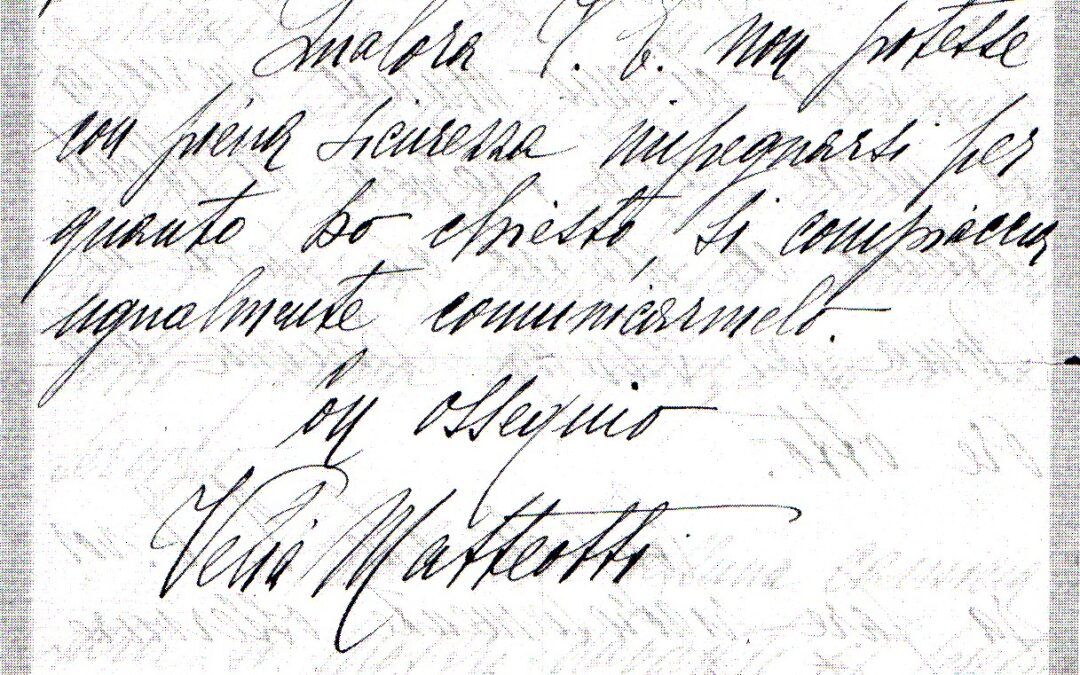 Qualora V. E. non potesse
con piena sicurezza impegnarsi per
quanto ho chiesto, si compiaccia
ugualmente comunicarmelo.
Con ossequio
Velia Matteotti